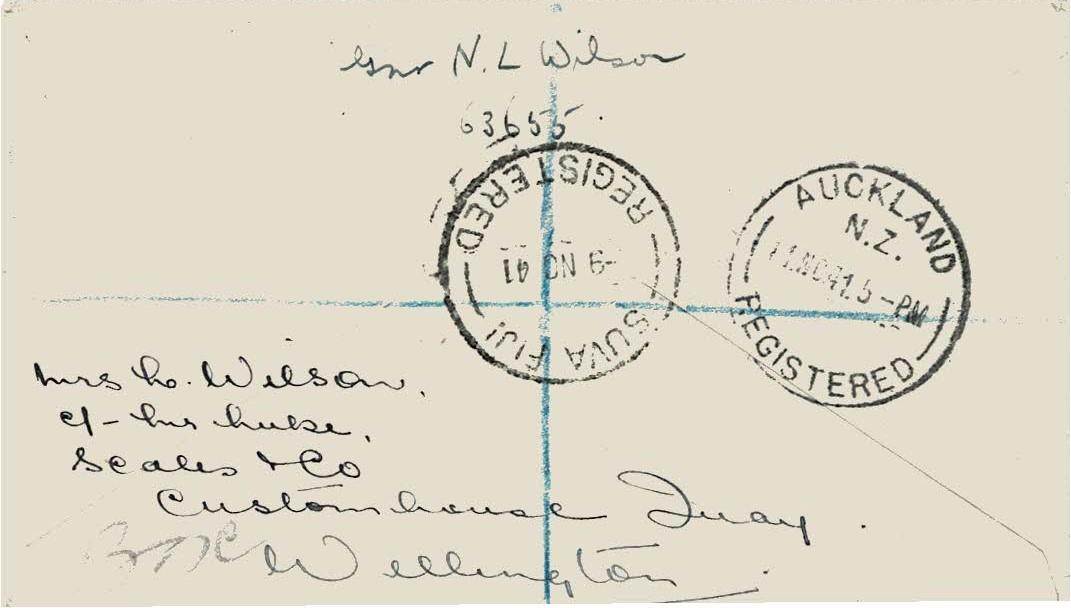 Gnr N. L Wilson
63655.
REGISTERED
-9 NO 41
SUVA FIJI
AUCKLAND
N.Z.
11NO41.5-PM
REGISTERED
Mrs Wilson,
c/- Mr
Scales & Co
Customhouse Quay.
Wellington